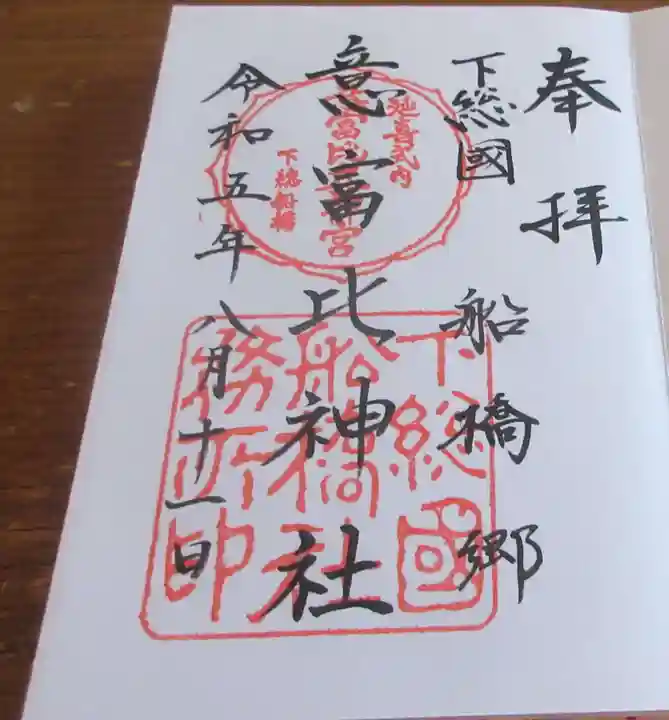 奉拝
下総國 船橋郷
意富比神社
令和五年八月十一日
延喜式内
意富比神宮
下總船橋
下総國
船橋大
務所印